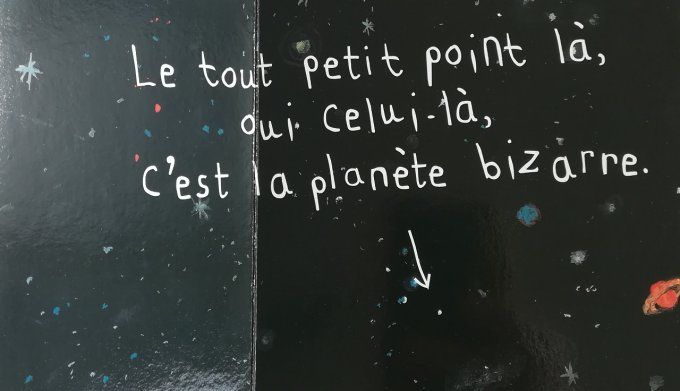 Le tout petit point là,
oui celui-là,
c'est la planète bizarre.